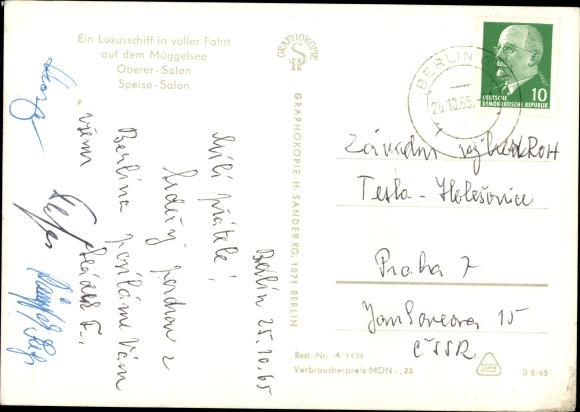 Ein Luxusschiff in voller Fahrt
auf dem Müggelsee
Oberer-Salon
Speise-Salon
GRAPHOKOPIE
H S
GRAPHOKOPIE H. SANDER KG, 1071 BERLIN
BERLIN
26.10.65
10
DEUTSCHE
DEMOKRATISCHE REPUBLIK
Berlin 25.10.65
Milí přátelé,
srdečný pozdrav z
Berlína posíláme Vám
všem
Závodní výbor ROH
Tesla - Holešovice
Praha 7
Jankovcova 15
ČSSR
Best.-Nr. A 1434
Verbraucherpreis MDN -,25
B 8/65